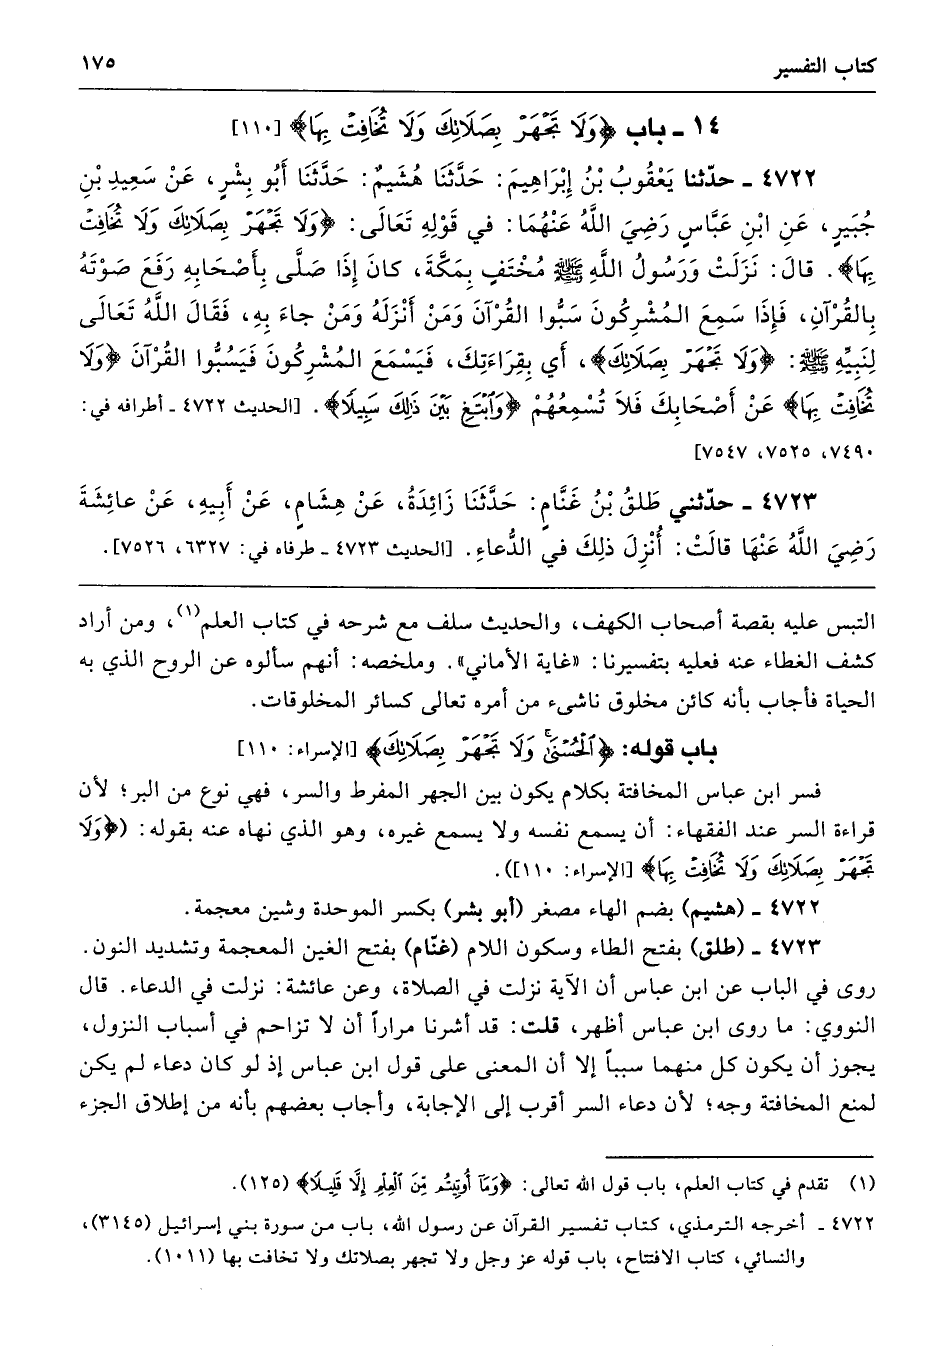 كتاب التفسير ١٧٥
١٤ ـ باب ﴿وَلَا تَجْهَرْ بِصَلَاتِكَ وَلَا تُخَافِتْ بِهَا﴾ [١١٠]
٤٧٢٢ ـ حدّثنا يَعْقُوبُ بْنُ إِبْرَاهِيمَ: حَدَّثَنَا هُشَيمٌ: حَدَّثَنَا أَبُو بِشْرٍ، عَنْ سَعِيدِ بْنِ
جُبَيرٍ، عَنِ ابْنِ عَبَّاسٍ رَضِيَ اللَّهُ عَنْهُمَا: في قَوْلِهِ تَعَالَى: ﴿وَلَا تَجْهَرْ بِصَلَاتِكَ وَلَا تُخَافِتْ
بِهَا﴾. قالَ: نَزَلَتْ وَرَسُولُ اللَّهِ ﷺ مُخْتَفٍ بِمَكَّةَ، كانَ إِذَا صَلَّى بِأَصْحَابِهِ رَفَعَ صَوْتَهُ
بِالقُرْآنِ، فَإِذَا سَمِعَ المُشْرِكُونَ سَبُّوا القُرْآنَ وَمَنْ أَنْزَلَهُ وَمَنْ جاءَ بِهِ، فَقَالَ اللَّهُ تَعَالَى
لِنَبِيِّهِ ﷺ: ﴿وَلَا تَجْهَرْ بِصَلَاتِكَ﴾، أي بِقِرَاءَتِكَ، فَيَسْمَعَ المُشْرِكُونَ فَيَسُبُّوا القُرْآنَ ﴿وَلَا
تُخَافِتْ بِهَا﴾ عَنْ أَصْحَابِكَ فَلاَ تُسْمِعُهُمْ ﴿وَٱبْتَغِ بَيْنَ ذَٰلِكَ سَبِيلًا﴾. [الحديث ٤٧٢٢ ـ أطرافه في:
٧٤٩٠، ٧٥٢٥، ٧٥٤٧]
٤٧٢٣ ـ حدّثني طَلقُ بْنُ غَنَّامٍ: حَدَّثَنَا زَائِدَةُ، عَنْ هِشَامٍ، عَنْ أَبِيهِ، عَنْ عائِشَةَ
رَضِيَ اللَّهُ عَنْهَا قالَتْ: أُنْزِلَ ذلِكَ في الدُّعاءِ. [الحديث ٤٧٢٣ ـ طرفاه في: ٦٣٢٧، ٧٥٢٦].
التبس عليه بقصة أصحاب الكهف، والحديث سلف مع شرحه في كتاب العلم(١)، ومن أراد
كشف الغطاء عنه فعليه بتفسيرنا: «غاية الأماني». وملخصه: أنهم سألوه عن الروح الذي به
الحياة فأجاب بأنه كائن مخلوق ناشىء من أمره تعالى كسائر المخلوقات.
باب قوله: ﴿ٱلْحُسْنَىٰۚ وَلَا تَجْهَرْ بِصَلَاتِكَ﴾ [الإسراء: ١١٠]
فسر ابن عباس المخافتة بكلام يكون بين الجهر المفرط والسر، فهي نوع من البر؛ لأن
قراءة السر عند الفقهاء: أن يسمع نفسه ولا يسمع غيره، وهو الذي نهاه عنه بقوله: (﴿وَلَا
تَجْهَرْ بِصَلَاتِكَ وَلَا تُخَافِتْ بِهَا﴾ [الإسراء: ١١٠]).
٤٧٢٢ ـ (هشيم) بضم الهاء مصغر (أبو بشر) بكسر الموحدة وشين معجمة.
٤٧٢٣ ـ (طلق) بفتح الطاء وسكون اللام (غنّام) بفتح الغين المعجمة وتشديد النون.
روى في الباب عن ابن عباس أن الآية نزلت في الصلاة، وعن عائشة: نزلت في الدعاء. قال
النووي: ما روى ابن عباس أظهر، قلت: قد أشرنا مراراً أن لا تزاحم في أسباب النزول،
يجوز أن يكون كل منهما سبباً إلا أن المعنى على قول ابن عباس إذ لو كان دعاء لم يكن
لمنع المخافتة وجه؛ لأن دعاء السر أقرب إلى الإجابة، وأجاب بعضهم بأنه من إطلاق الجزء
(١) تقدم في كتاب العلم، باب قول الله تعالى: ﴿وَمَآ أُوتِيتُم مِّنَ ٱلْعِلْمِ إِلَّا قَلِيلًا﴾ (١٢٥).
٤٧٢٢ ـ أخرجه الترمذي، كتاب تفسير القرآن عن رسول الله، باب من سورة بني إسرائيل (٣١٤٥)،
والنسائي، كتاب الافتتاح، باب قوله عز وجل ولا تجهر بصلاتك ولا تخافت بها (١٠١١).